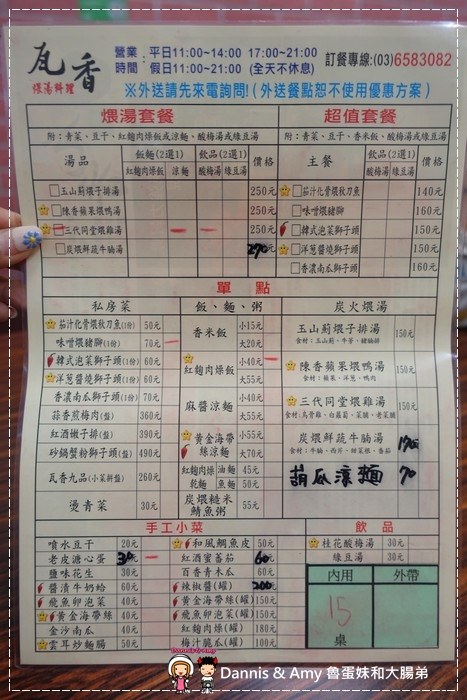 瓦香
煨湯料理
營業時間：平日11:00~14:00 17:00~21:00
假日11:00~21:00 (全天不休息)
訂餐專線:(03)6583082
※外送請先來電詢問!(外送餐點恕不使用優惠方案)
煨湯套餐
附：青菜、豆干、紅麴肉燥飯或涼麵、酸梅湯或綠豆湯
湯品 飯麵(2選1) 飲品(2選1) 價格
紅麴肉燥飯 涼麵 酸梅湯 綠豆湯
☆□玉山薊煨子排湯 250元
☆□陳香蘋果煨鴨湯 250元
☆□三代同堂煨雞湯 250元
□炭煨鮮蔬牛腩湯 270元
超值套餐
附：青菜、豆干、香米飯、酸梅湯或綠豆湯
主餐 飲品(2選1) 價格
酸梅湯 綠豆湯
☆□茄汁化骨煨秋刀魚 140元
□味噌煨豬腳 160元
□韓式泡菜獅子頭 150元
☆□洋蔥醬燒獅子頭 150元
□香濃南瓜獅子頭 160元
單點
私房菜
☆茄汁化骨煨秋刀魚(1份) 50元
味噌煨豬腳(1份) 70元
韓式泡菜獅子頭(1份) 60元
☆洋蔥醬燒獅子頭(1份) 60元
香濃南瓜獅子頭(1份) 70元
蒜香煎梅肉(盤) 360元
紅酒嫩子排(盤) 390元
砂鍋蟹粉獅子頭(盤) 490元
瓦香九品(小菜拼盤) 260元
燙青菜 30元
飯、麵、粥
香米飯 小15元
大20元
☆紅麴肉燥飯 小40元
大55元
麻醬涼麵 小40元
大55元
☆黃金海帶絲涼麵 小55元
大70元
紅麴肉燥油麵 45元
乾麵 魚麵 50元
炭煨糙米鯖魚粥 55元
炭火煨湯
玉山薊煨子排湯 150元
食材：玉山薊、牛蒡、豬腩排
☆陳香蘋果煨鴨湯 150元
食材：蘋果、洋蔥、鴨肉
☆三代同堂煨雞湯 150元
食材：烏骨雞、白蘿蔔、菜脯、老菜脯
炭煨鮮蔬牛腩湯 170元
食材：牛腩、西芹、甜菜根、番茄
葫瓜涼麵 70
手工小菜
噴水豆干 20元
老皮溏心蛋 30元
鹽味花生 30元
醬漬牛奶蛤 60元
飛魚卵泡菜 40元
☆黃金海帶絲 40元
金沙南瓜 40元
☆雲耳炒麵腸 50元
☆和風鯛魚皮 50元
紅酒蜜蕃茄 60元
百香青木瓜 60元
辣椒醬(罐) 200元
黃金海帶絲(罐) 150元
飛魚卵泡菜(罐) 150元
紅麴肉燥(罐) 180元
梅汁脆瓜(罐) 100元
飲品
☆桂花酸梅湯 30元
綠豆湯 30元
內用 外帶
15
桌
Dannis & Amy
Dannis & Amy 魯蛋妹和大腸弟